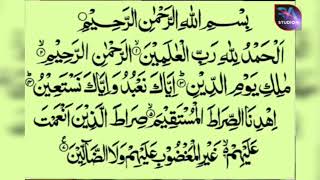 بِسْمِ اللهِ الرَّحْمٰنِ الرَّحِيْمِ
اَلْحَمْدُ لِلّٰهِ رَبِّ الْعٰلَمِيْنَ ۙ الرَّحْمٰنِ الرَّحِيْمِ ۙ
مٰلِكِ يَوْمِ الدِّيْنِ ؕ اِيَّاكَ نَعْبُدُ وَاِيَّاكَ نَسْتَعِيْنُ ؕ
اِهْدِنَا الصِّرَاطَ الْمُسْتَقِيْمَ ۙ صِرَاطَ الَّذِيْنَ اَنْعَمْتَ
عَلَيْهِمْ ۙ غَيْرِ الْمَغْضُوْبِ عَلَيْهِمْ وَلَا الضَّآلِّيْنَ
STUDIO